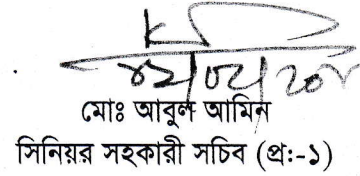 মোঃ আবুল আমিন
সিনিয়র সহকারী সচিব (প্র:-১)